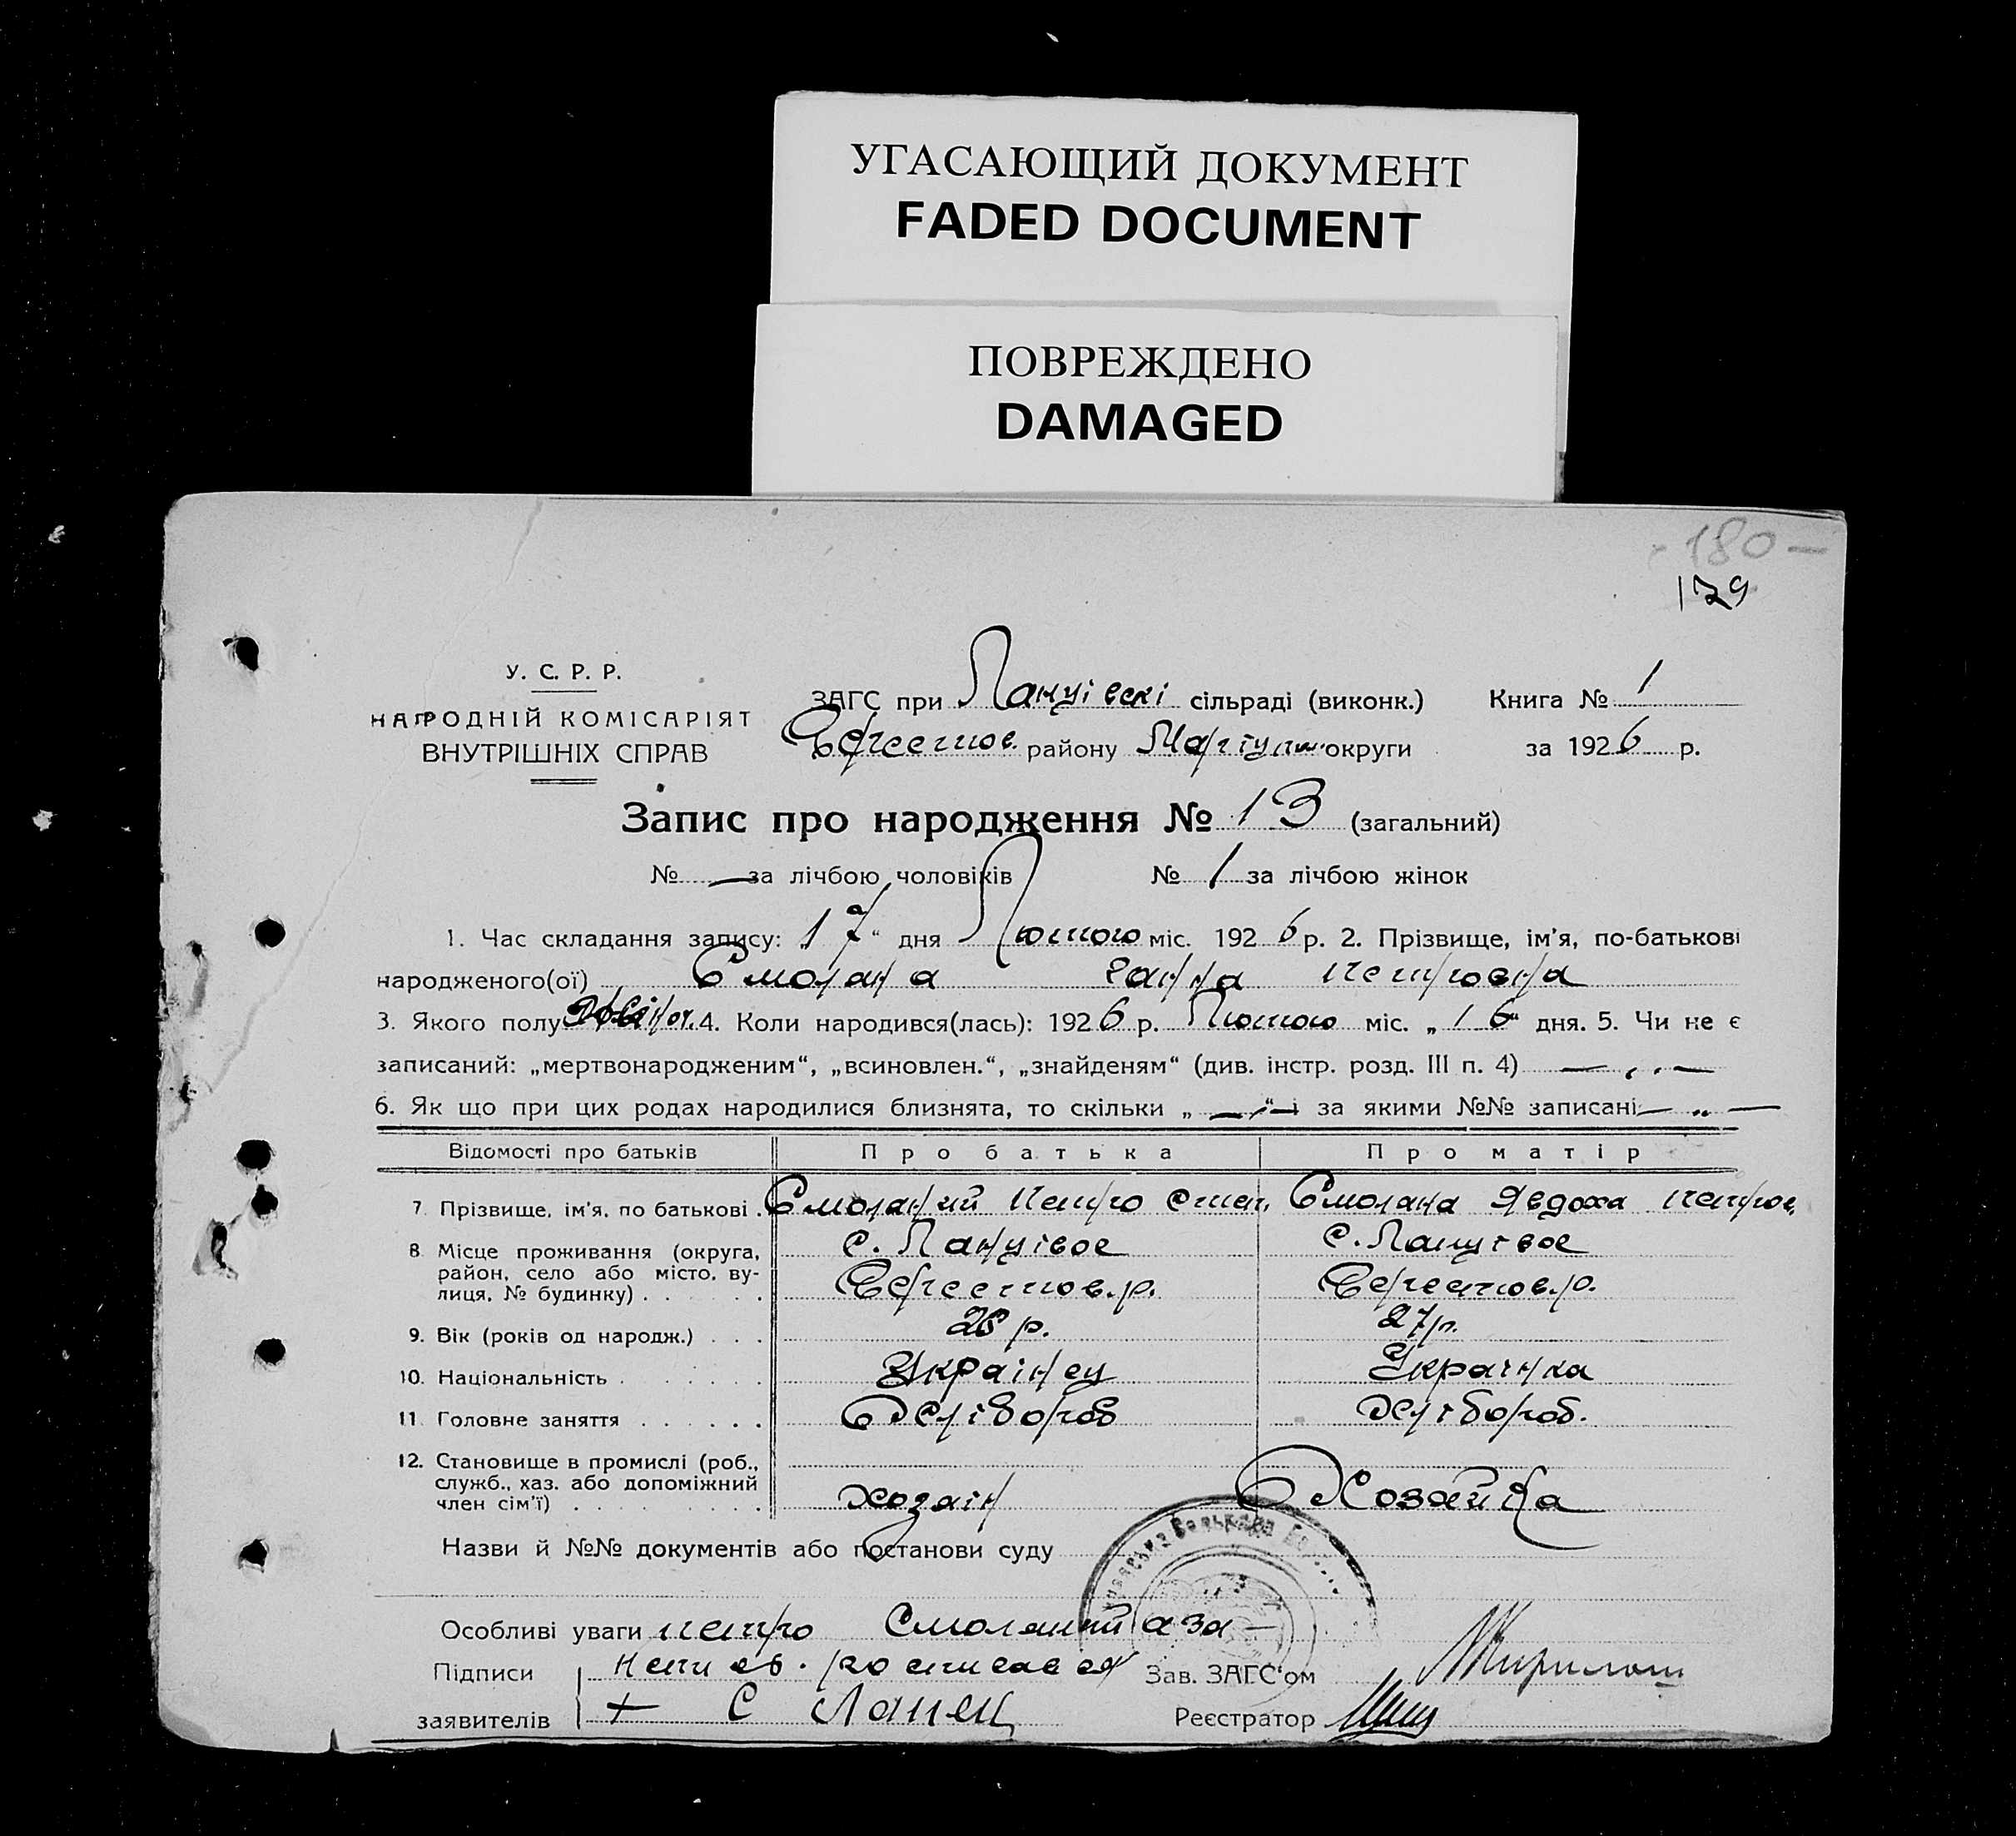 УГАСАЮЩИЙ ДОКУМЕНТ
FADED DOCUMENT
ПОВРЕЖДЕНО
DAMAGED
180 —
179
У. С. Р. Р.
НАРОДНІЙ КОМІСАРІЯТ
ВНУТРІШНІХ СПРАВ
ЗАГС при сільраді (виконк.) Книга № 1
району округи за 1926 р.
Запис про народження № 13 (загальний)
№ — за лічбою чоловіків № 1 за лічбою жінок
1. Час складання запису: „17“ дня Лютого міс. 1926 р. 2. Прізвище, ім'я, по-батькові
народженого(ої) Смолана Ганна Петровна
3. Якого полу 4. Коли народився(лась): 1926 р. Лютого міс. „16“ дня. 5. Чи не є
записаний: „мертвонародженим“, „всиновлен.“, „знайденям“ (див. інстр. розд. III п. 4) —„—
6. Як що при цих родах народилися близнята, то скільки „—“ і за якими №№ записані — „ —
Відомості про батьків Про батька Про матір
7. Прізвище, ім'я, по батькові . Смоланий Петро Степ. Смолана Явдоха Петров.
8. Місце проживання (округа, район, село або місто, вулиця, № будинку) . . . . с. Ланцівое с. Ланцівое
9. Вік (років од народж.) . . . 28 р. 27 р.
10. Національність . . . . . . Українец Українка
11. Головне заняття . . . . . . Хлібороб Хлібороб.
12. Становище в промислі (роб., служб., хаз. або допоміжний член сім'ї) . . . . . . . . . хозаін Хозайка
Назви й №№ документів або постанови суду
Особливі уваги Петро Смоланий аза
Підписи росписався Зав. ЗАГС'ом
заявителів + С Ланец Реєстратор